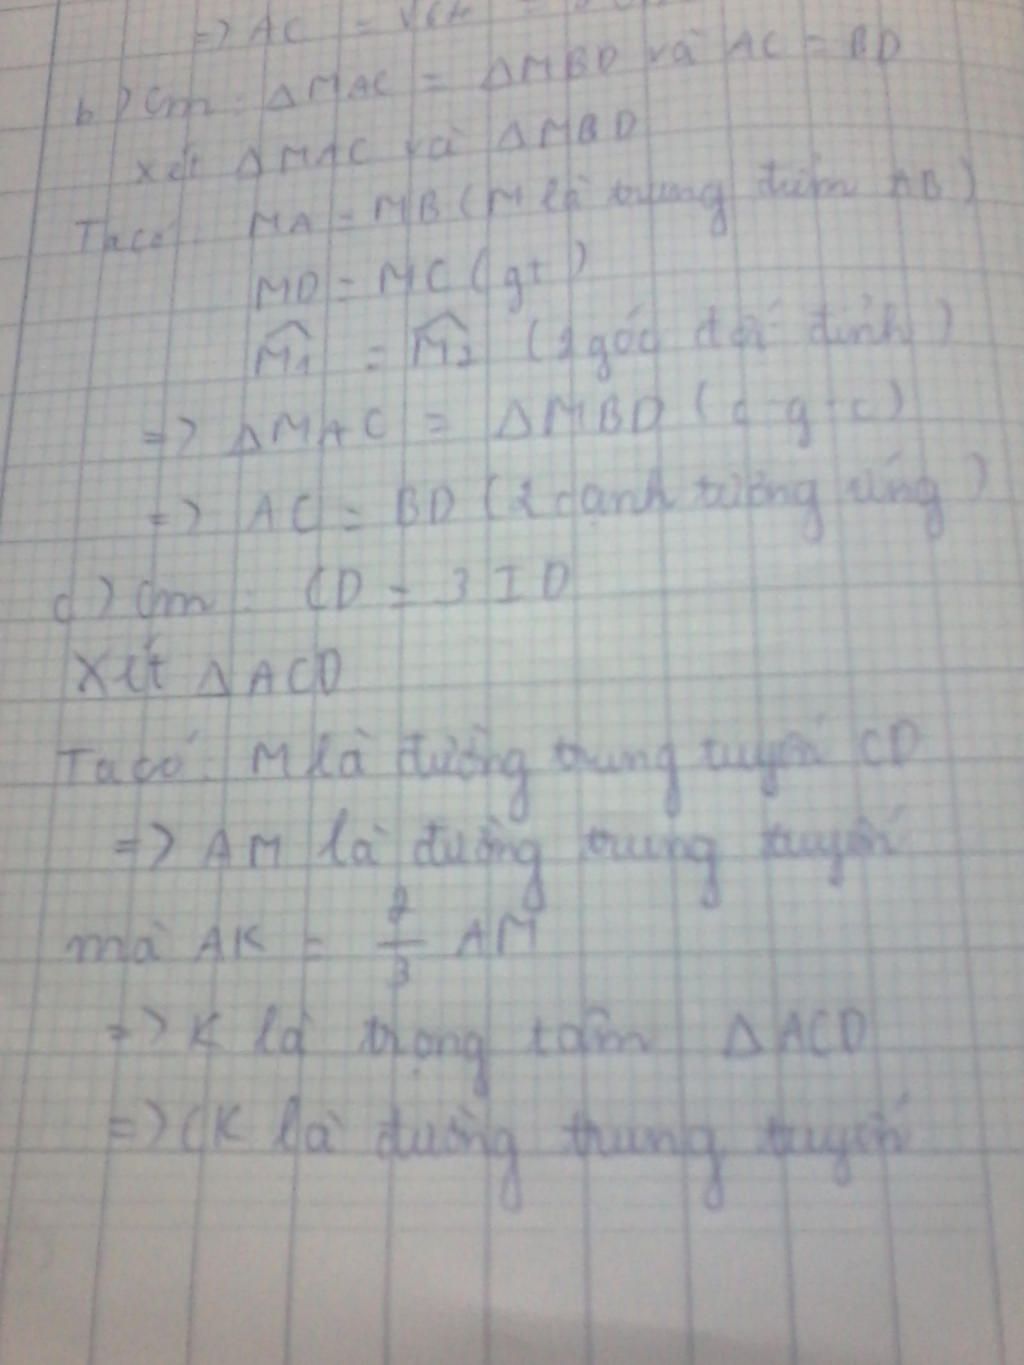 => AC = √64 =
b) Cm : ΔMAC = ΔMBD và AC = BD
Xét ΔMAC và ΔMBD
Ta có : MA = MB (M là trung điểm AB)
MD = MC (gt)
M̂1 = M̂2 (2 góc đối đỉnh)
=> ΔMAC = ΔMBD (c-g-c)
=> AC = BD (2 cạnh tương ứng)
c) Cm : CD = 3ID
Xét ΔACD
Ta có : M là đường trung tuyến CD
=> AM là đường trung tuyến
mà AK = 2/3 AM
=> K là trọng tâm ΔACD
=> CK là đường trung tuyến